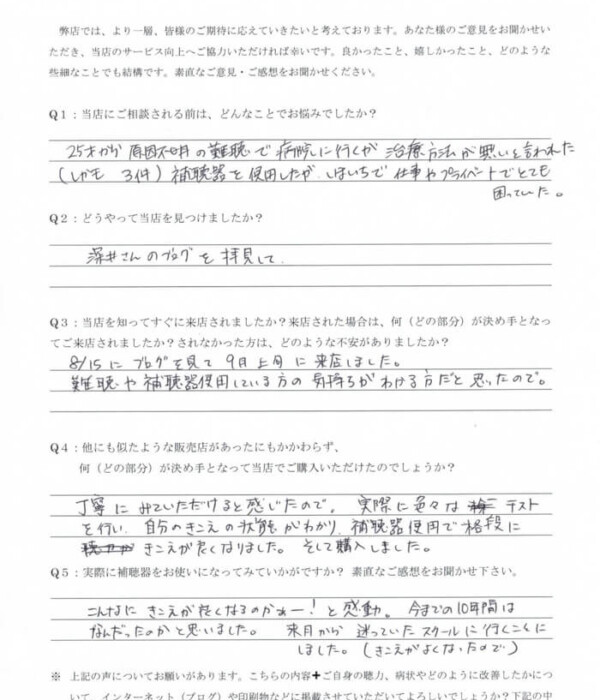 弊店では、より一層、皆様のご期待に応えていきたいと考えております。あなた様のご意見をお聞かせい
ただき、当店のサービス向上へご協力いただければ幸いです。良かったこと、嬉しかったこと、どのような
些細なことでも結構です。素直なご意見・ご感想をお聞かせください。
Q1：当店にご相談される前は、どんなことでお悩みでしたか？
25才から原因不明の難聴で病院に行くが治療方法が無いと言われた
（しかも 3件）補聴器を使用したが、いまいちで仕事やプライベートでとても
困っていた。
Q2：どうやって当店を見つけましたか？
深井さんのブログを拝見して
Q3：当店を知ってすぐに来店されましたか？来店された場合は、何（どの部分）が決め手となっ
てご来店されましたか？されなかった方は、どのような不安がありましたか？
8/15にブログを見て9月上旬に来店しました。
難聴や補聴器使用している方の気持ちがわける方だと思ったので。
Q4：他にも似たような販売店があったにもかかわらず、
何（どの部分）が決め手となって当店でご購入いただけたのでしょうか？
丁寧にみていただけると感じたので。実際に色々な テスト
を行い、自分のきこえの状態がわかり、補聴器使用で格段に
きこえが良くなりました。そして購入しました。
Q5：実際に補聴器をお使いになってみていかがですか？ 素直なご感想をお聞かせ下さい。
こんなにきこえが良くなるのかぁー！と感動。今までの10年間は
なんだったのかと思いました。来月から迷っていたスクールに行くことに
しました。（きこえがよくなったので）
※ 上記の声についてお願いがあります。こちらの内容＋ご自身の聴力、病状やどのように改善したかにつ
いて、インターネット（ブログ）や印刷物などに掲載させていただいてよろしいでしょうか？下記の中